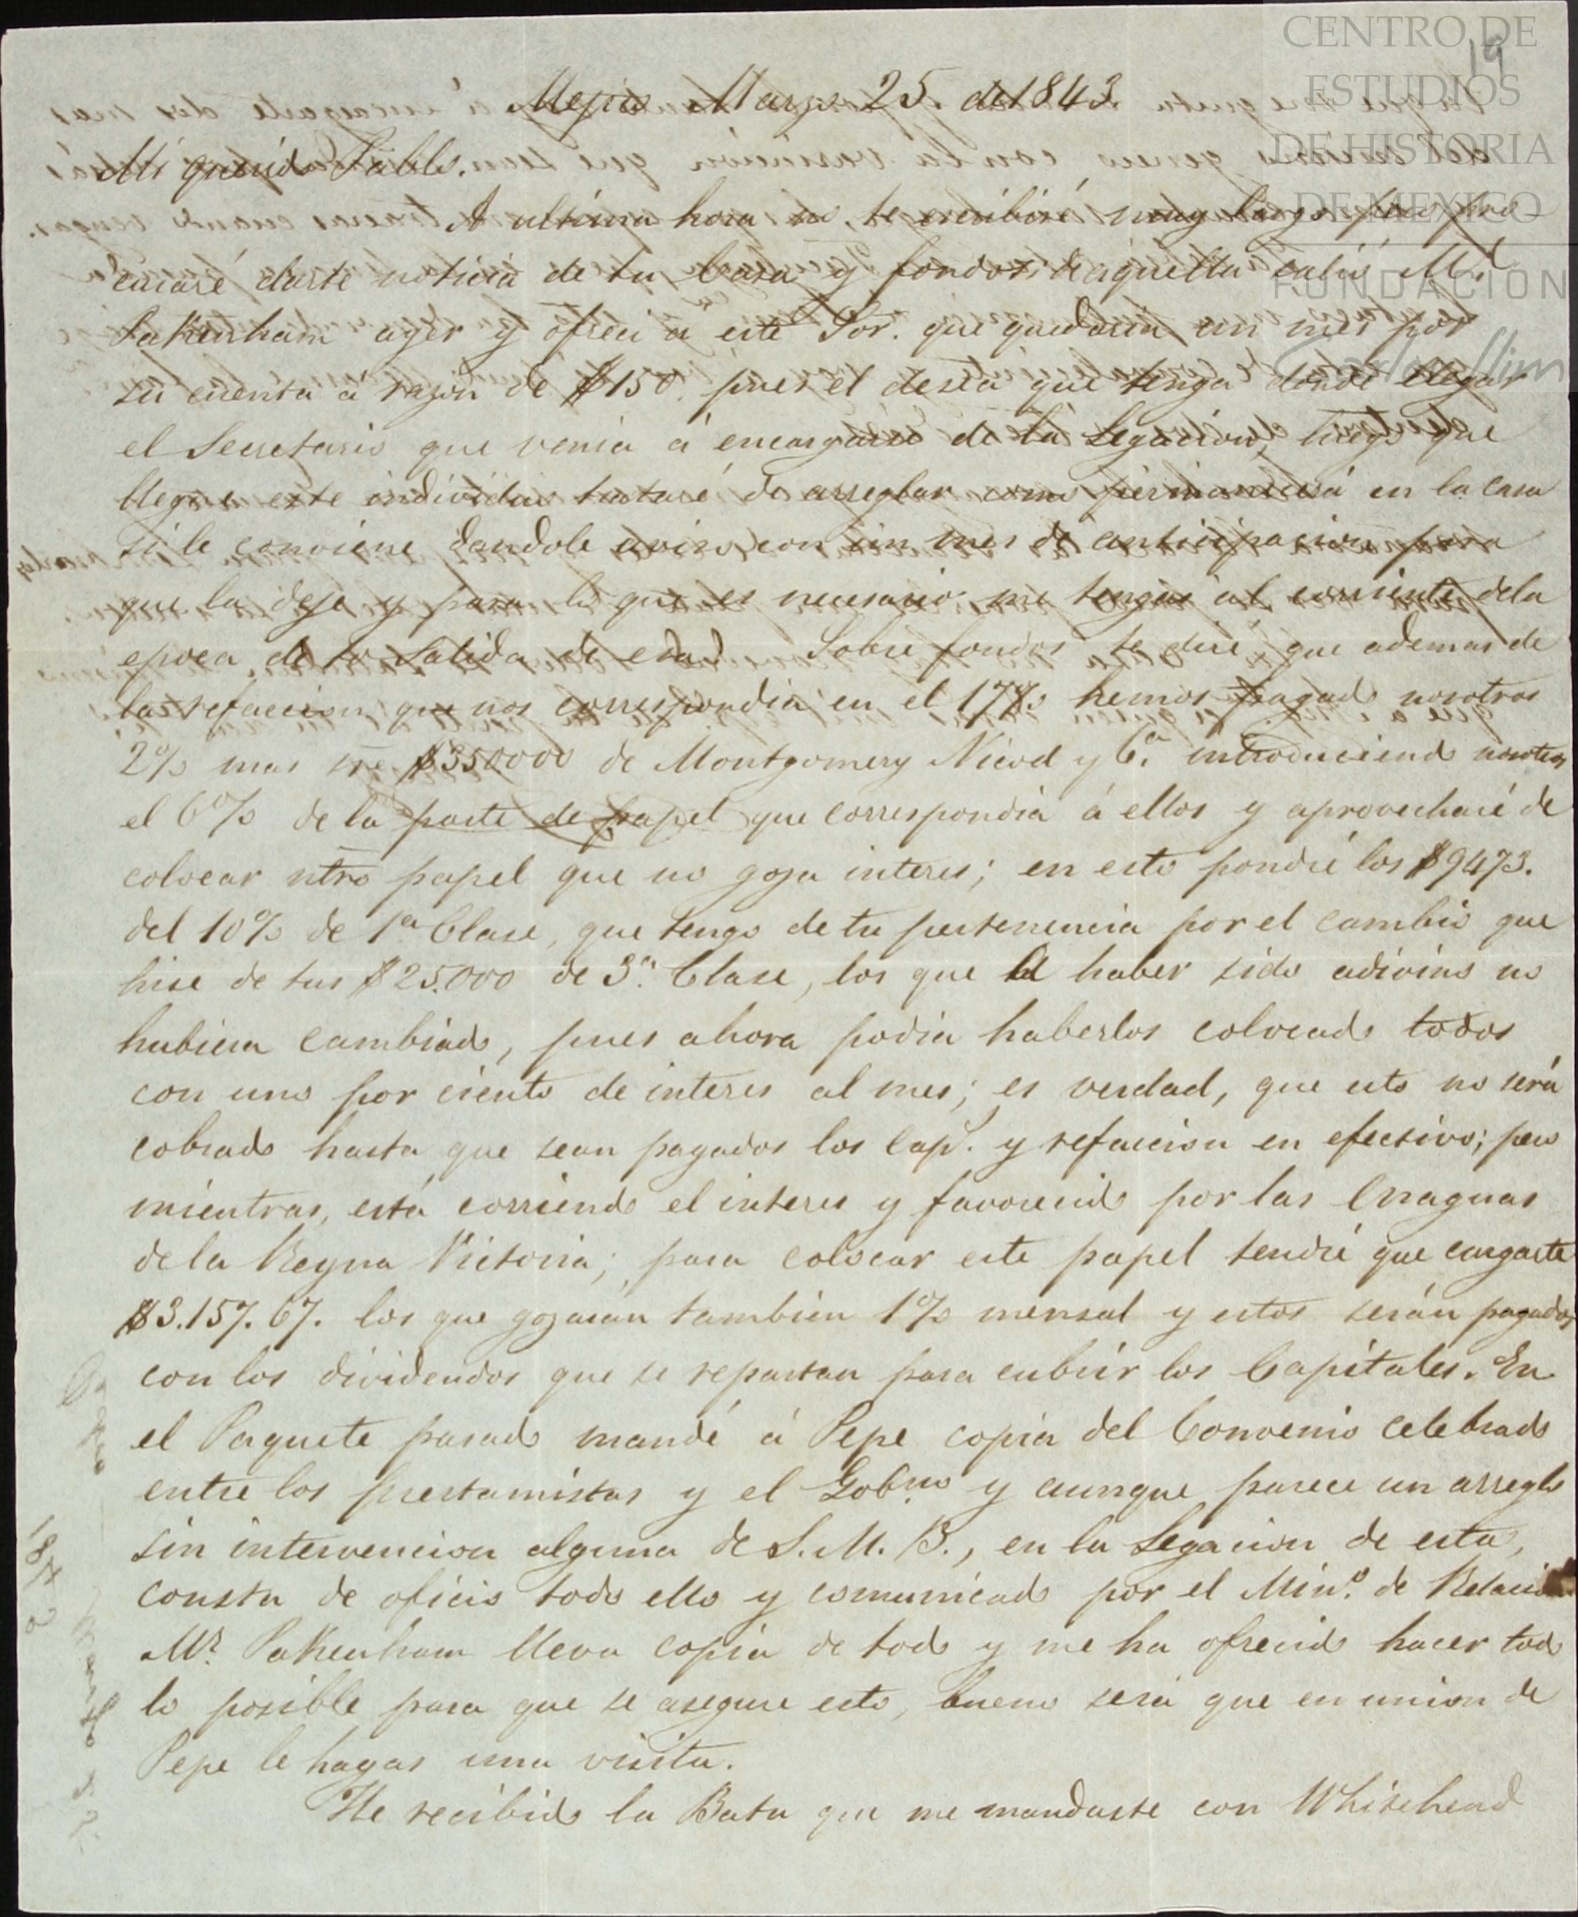 CENTRO DE
ESTUDIOS
DE HISTORIA
DE MEXICO
FUNDACION
Carlos Slim
19
Mejico Marzo 25. de 1843.
Mi querido Pablo.
A ultima hora no te escribiré muy largo pero pro-
curaré darte noticia de tu Casa y fondos: de aquella salió Mr.
Pakenham ayer y ofreci á este Sor. que quedaria un mes por
su cuenta á razon de $150. pues el desea que tenga donde llegar
el Secretario que venia á encargarse de la Legacion, luego que
llegue este individuo trataré de arreglar como permanecerá en la casa
si le conviene dandole aviso con un mes de anticipacion para
que la deje y para lo que es necesario me tengas al corriente dela
epoca de tu salida de esad. Sobre fondos te diré, que ademas de
la refaccion que nos correspondia en el 17% hemos pagado nosotros
2% mas sre. $350000 de Montgomery Nicod y Ca. introduciendo nosotros
el 6% de la parte de papel que correspondia á ellos y aprovecharé de
colocar ntro papel que no goza interes; en esto pondré los $9473.
del 10% de 1a. Clase, que tengo de tu pertenencia por el cambio que
hise de tus $25.000 de 3a. Clase, los que á haber sido adivino no
hubiera cambiado, pues ahora podia haberlos colocado todos
con uno por ciento de interes al mes; es verdad, que esto no será
cobrado hasta que sean pagados los Caps. y refaccion en efectivo; pero
mientras, está corriendo el interes y favorecido por las Enaguas
de la Reyna Victoria; para colocar este papel tendré que cargarte
$3.157.67. los que gozaran tambien 1% mensal y estos serán pagados
con los dividendos que se repartan para cubrir los Capitales. En
el Paquete pasado mandé á Pepe copia del Convenio celebrado
entre los prestamistas y el Gobno. y aunque parece un arreglo
sin intervencion alguna de S.M.B., en la Legacion de esta,
consta de oficio todo ello y comunicado por el Mino. de
Mr. Pakenham lleva copia de todo y me ha ofrecido hacer todo
lo posible para que se asegure esto, bueno será que en union de
Pepe le hagas una visita.
He recibido la Bata que me mandaste con Whitehead